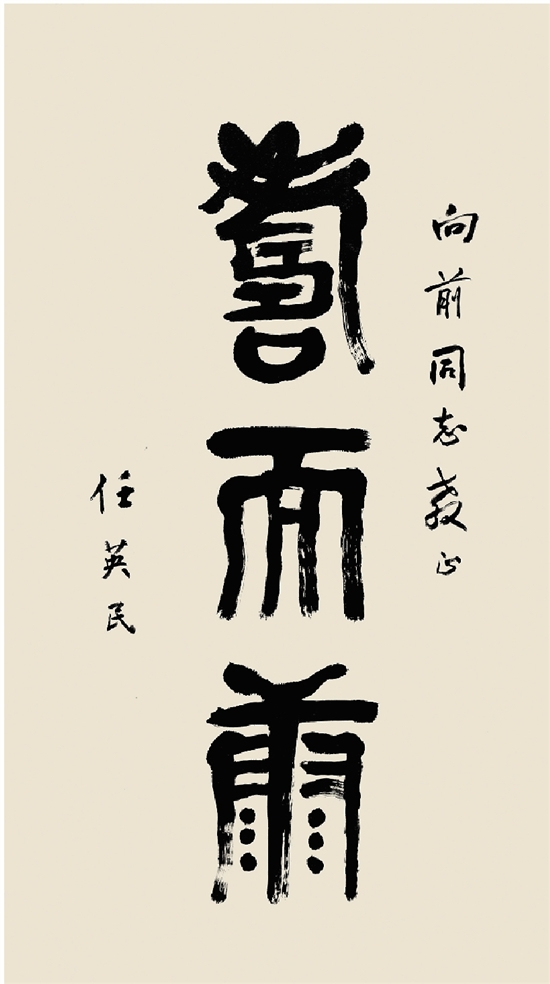 向前同志教正
壽而康
任英民